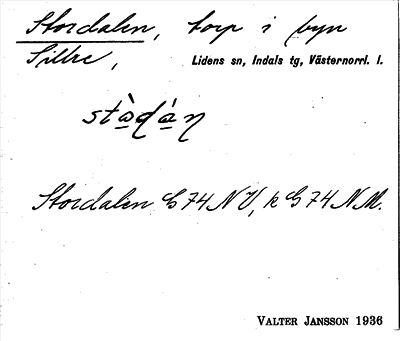 Stordalen, torp i byn
Sillre,
Lidens sn, Indals tg, Västernorrl. l.
Stordalen G74NV, k G74NM.
VALTER JANSSON 1936